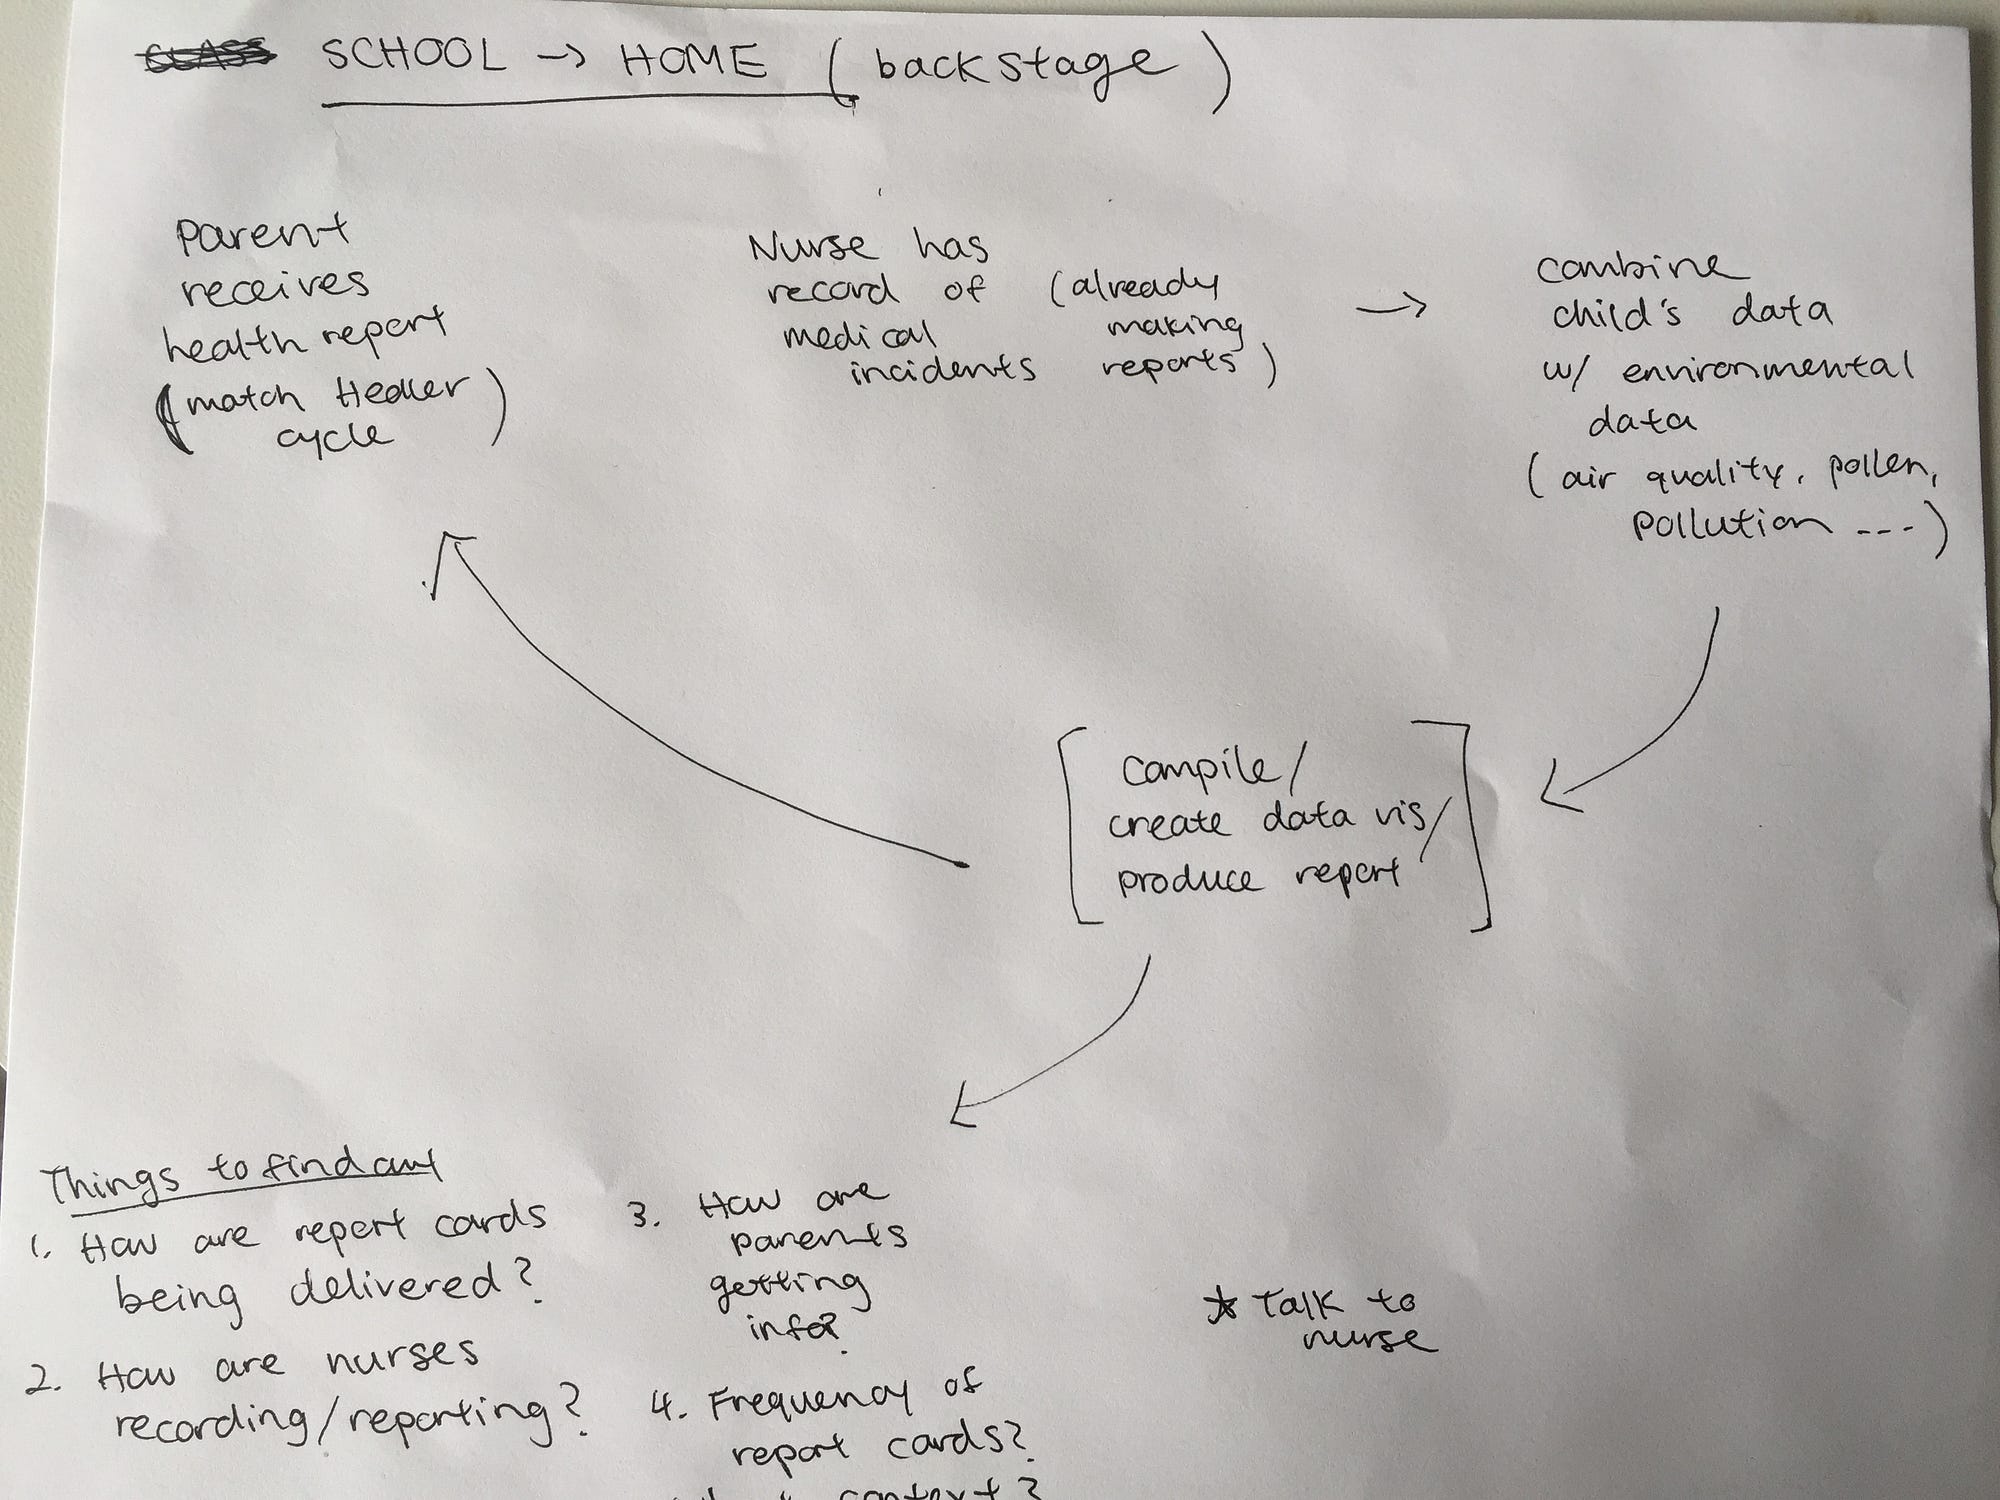 SCHOOL → HOME (backstage)
Parent
receives
health report
(match Healer
cycle)
Nurse has
record of (already
medical making
incidents reports)
→
combine
child's data
w/ environmental
data
(air quality, pollen,
pollution ---)
[compile/
create data vis/
produce report]
Things to find out
1. How are report cards
being delivered?
2. How are nurses
recording/reporting?
3. How are
parents
getting
info?
4. Frequency of
report cards?
context?
* Talk to
nurse